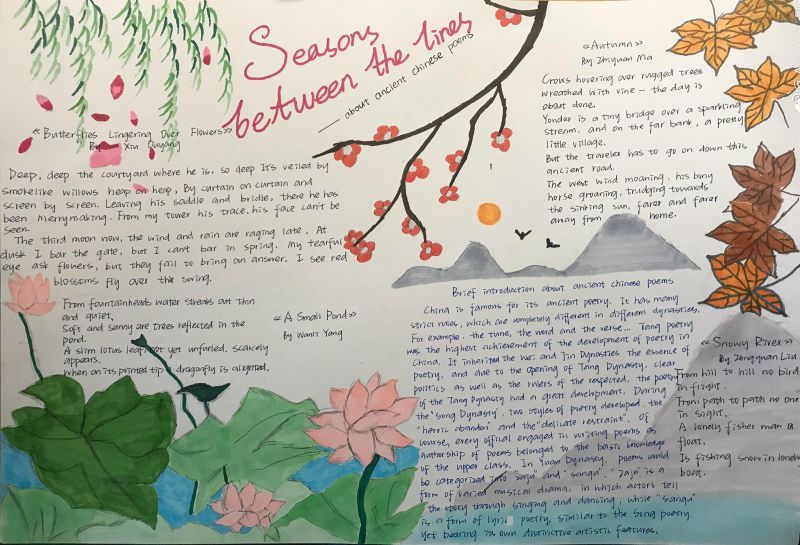 Seasons
between the lines
— about ancient chinese poems
《Butterflies Lingering Over Flowers》
By Xiu Ouyang
Deep, deep the courtyard where he is, so deep It's veiled by
smokelike willows heap on heap, By curtain on curtain and
screen by screen. Leaving his saddle and bridle, there he has
been merrymaking. From my tower his trace, his face can't be
seen.
The third moon now, the wind and rain are raging late, At
dusk I bar the gate, but I can't bar in spring. My tearful
eye ask flowers, but they fail to bring an answer. I see red
blossoms fly over the swing.
From fountainheads water streaks out thin
and quiet,
Soft and sunny are trees reflected in the
pond.
A slim lotus leaf not yet unfurled, scarcely
appears.
When on its pointed tip a dragonfly is alighted.
《A Small Pond》
By Wanli Yang
《Autumn》
By Zhiyuan Ma
Crows hovering over rugged trees
wreathed with vine — the day is
about done.
Yonder is a tiny bridge over a sparkling
stream, and on the far bank, a pretty
little village.
But the traveler has to go on down this
ancient road.
The west wind moaning, his bony
horse groaning, trudging towards
the sinking sun, farer and farer
away from home.
Brief introduction about ancient Chinese poems
China is famous for its ancient poetry. It has many
strict rules, which are completely different in different dynasties.
For example, the tune, the word and the verse... Tang poetry
was the highest achievement of the development of poetry in
China. It inherited the Wei and Jin Dynasties the essence of
poetry, and due to the opening of Tang Dynasty, clear
politics as well as the rulers of the respected, the poetry
of the Tang Dynasty had a great development. During
the "Song Dynasty", two styles of poetry developed, the
"heroic abandon" and the "delicate restraint". Of
course, every offical engaged in writing poems as
authorship of poems belonged to the basic knowledge
of the upper class. In Yuan Dynasty, poems could
be categorized into "zaju" and "sanqu". "Zaju" is a
form of varied musical drama, in which actors tell
the story through singing and dancing, while "sanqu"
is a form of lyric poetry, similar to the Song poetry.
Yet bearing its own distinctive artistic features.
《Snowy River》
By Zongyuan Liu
From hill to hill no bird
in flight.
From path to path no one
in sight.
A lonely fisher man a
float.
Is fishing snow in lonely
boat.